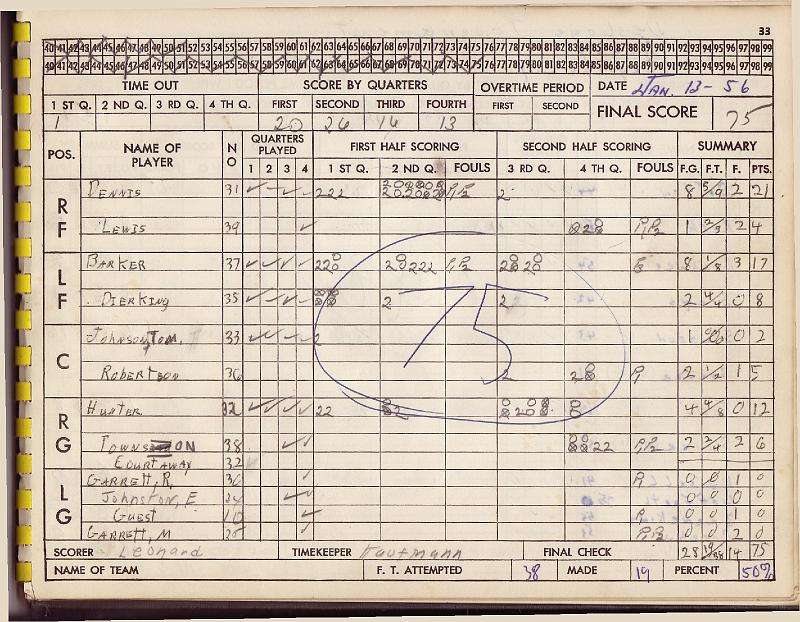 33
40 41 42 43 44 45 46 47 48 49 50 51 52 53 54 55 56 57 58 59 60 61 62 63 64 65 66 67 68 69 70 71 72 73 74 75 76 77 78 79 80 81 82 83 84 85 86 87 88 89 90 91 92 93 94 95 96 97 98 99
40 41 42 43 44 45 46 47 48 49 50 51 52 53 54 55 56 57 58 59 60 61 62 63 64 65 66 67 68 69 70 71 72 73 74 75 76 77 78 79 80 81 82 83 84 85 86 87 88 89 90 91 92 93 94 95 96 97 98 99
TIME OUT SCORE BY QUARTERS OVERTIME PERIOD DATE JAN. 13-56
1 ST Q. 2 ND Q. 3 RD Q. 4 TH Q. FIRST SECOND THIRD FOURTH FIRST SECOND FINAL SCORE 75
1 20 26 16 13
POS. NAME OF PLAYER NO QUARTERS PLAYED FIRST HALF SCORING SECOND HALF SCORING SUMMARY
1 2 3 4 1 ST Q. 2 ND Q. FOULS 3 RD Q. 4 TH Q. FOULS F.G. F.T. F. PTS.
RF DENNIS 31 ✓ ✓ ✓ 222 P1P2 2 8 5/9 2 21
LEWIS 39 ✓ P1P2 1 2/3 2 4
LF BARKER 37 ✓ ✓ ✓ ✓ 220 20222 P1P2 8 1/8 3 17
DIERKING 35 ✓ ✓ ✓ ✓ 2 2 2 4/4 0 8
75
C JOHNSON, TOM. 33 ✓ ✓ ✓ 2 1 0/0 0 2
ROBERTSON 36 2 P1 2 1/2 1 5
RG HUNTER 32 ✓ ✓ ✓ ✓ 22 4 4/8 0 12
TOWNSON 38 ✓ ✓ 22 P1P2 2 2/4 2 6
COURTAWAY 32
LG GARRETT, R. 30 ✓ P1 0 0 1 0
JOHNSTON, E 34 ✓ ✓ 0 0 0 0
GUEST 10 ✓ P1 0 0 1 0
GARRETT, M ✓ P1P2 0 0 2 0
SCORER Leonard TIMEKEEPER Kaufmann FINAL CHECK 28 19/38 14 75
NAME OF TEAM F. T. ATTEMPTED 38 MADE 19 PERCENT 50%